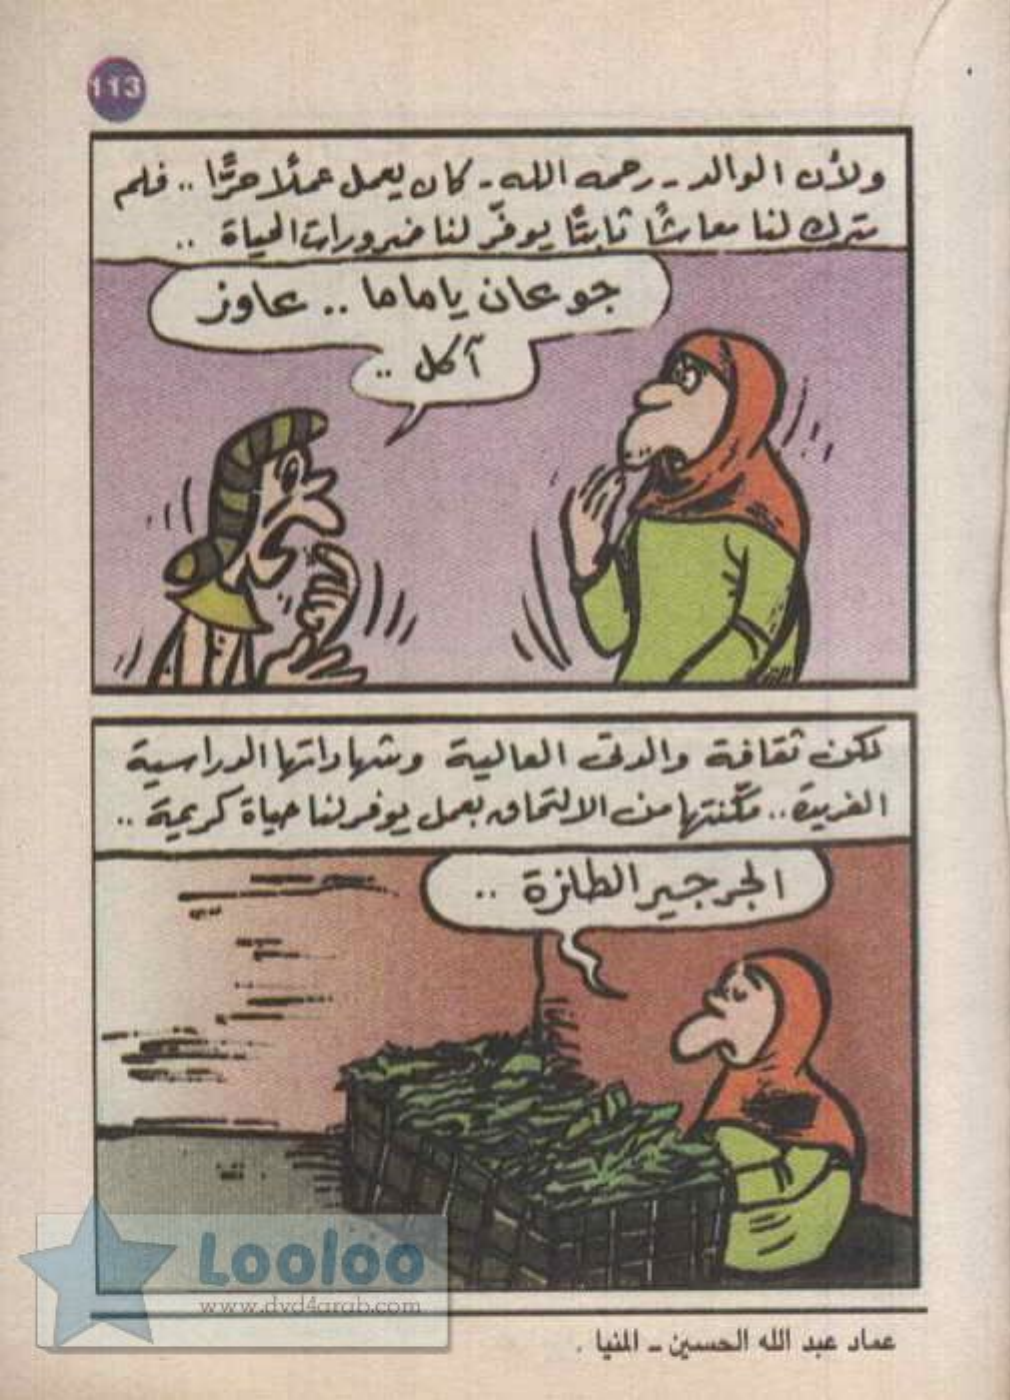 113
ولأن الوالد - رحمه الله - كان يعمل عملًا حرًّا .. فلم
يترك لنا معاشًا ثابتًا يوفّر لنا ضرورات الحياة ..
جوعان ياماما .. عاوز
آكل ..
لكن ثقافة والدتى العالية وشهاداتها الدراسية
الفريدة .. مكّنتها من الالتحاق بعمل يوفر لنا حياة كريمة ..
الجرجير الطازة ..
Looloo
www.dvd4arab.com
عماد عبد الله الحسين - المنيا .